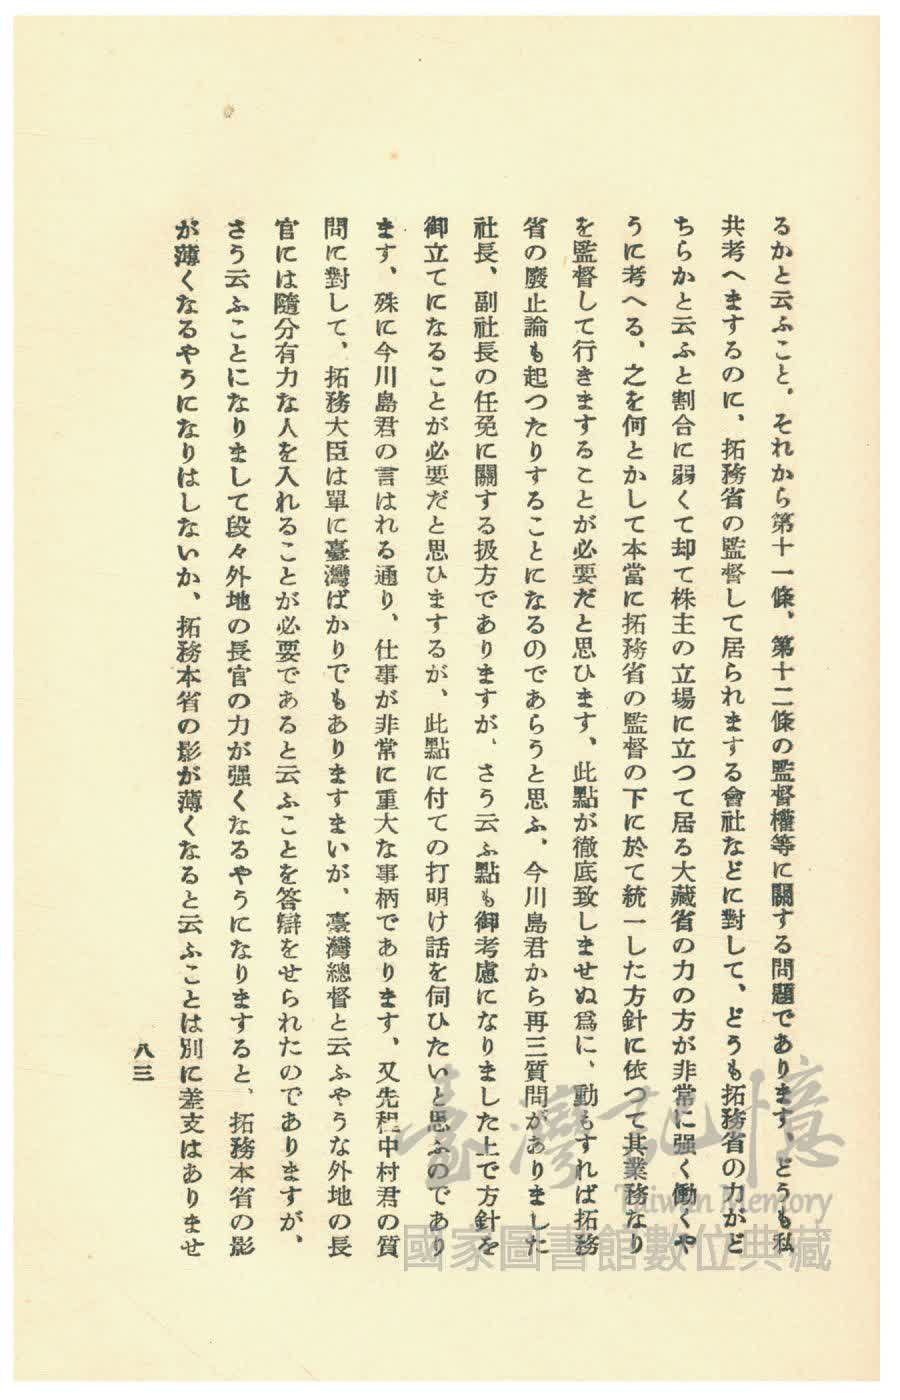 るかと云ふこと、それから第十一條、第十二條の監督權等に關する問題であります、どうも私
共考へまするのに、拓務省の監督して居られまする會社などに對して、どうも拓務省の力がど
ちらかと云ふと割合に弱くて却て株主の立場に立つて居る大藏省の力の方が非常に强く働くや
うに考へる、之を何とかして本當に拓務省の監督の下に於て統一した方針に依つて其業務なり
を監督して行きますることが必要だと思ひます、此點が徹底致しませぬ爲に、動もすれば拓務
省の廢止論も起つたりすることになるのであらうと思ふ、今川島君から再三質問がありました
社長、副社長の任免に關する扱方でありますが、さう云ふ點も御考慮になりました上で方針を
御立てになることが必要だと思ひまするが、此點に付ての打明け話を伺ひたいと思ふのであり
ます、殊に今川島君の言はれる通り、仕事が非常に重大な事柄であります、又先程中村君の質
問に對して、拓務大臣は單に臺灣ばかりでもありますまいが、臺灣總督と云ふやうな外地の長
官には隨分有力な人を入れることが必要であると云ふことを答辯をせられたのでありますが、
さう云ふことになりまして段々外地の長官の力が强くなるやうになりますると、拓務本省の影
が薄くなるやうになりはしないか、拓務本省の影が薄くなると云ふことは別に差支はありませ
八三
臺灣記憶
Taiwan Memory
國家圖書館數位典藏